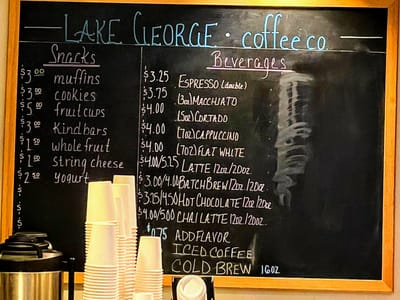 LAKE GEORGE · coffee co.
Snacks
$3.00 muffins
$3.00 cookies
$5.00 fruit cups
$3.00 Kind bars
$1.50 whole fruit
$1.50 string cheese
$2.50 yogurt
Beverages
$3.25 ESPRESSO (double)
$3.75 (3oz) MACCHIATO
$4.00 (5oz) CORTADO
$4.00 (7oz) CAPPUCCINO
$4.00 (7oz) FLAT WHITE
$4.00/5.25 LATTE 12oz/20oz.
$3.00/4.00 BATCH BREW 12oz/20oz.
$3.75/4.50 HOT CHOCOLATE 12oz/20oz.
$4.00/5.00 CHAI LATTE 12oz/20oz.
$0.75 ADD FLAVOR
ICED COFFEE
COLD BREW 16oz